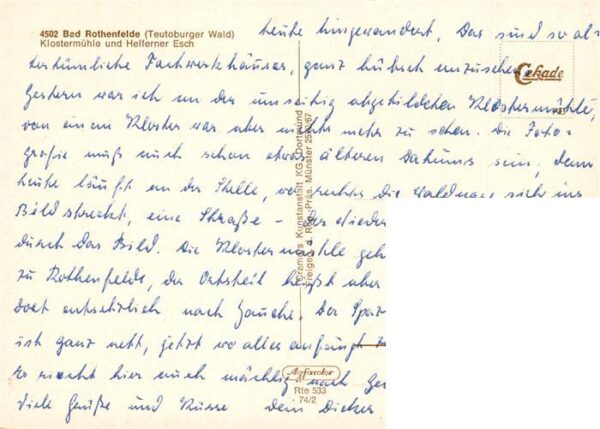 4502 Bad Rothenfelde (Teutoburger Wald)
Klostermühle und Helferner Esch
heute hingewandert. Das sind so al-
tertümliche Fachwerkhäuser, ganz hübsch anzusehen
Gestern war ich an der umseitig abgebildeten Klostermühle,
von einem Kloster war aber nichts mehr zu sehen. Die Foto-
grafie muß auch schon etwas älteren Datums sein, denn
heute läuft an der Stelle, wo rechts die sich ins
Bild streckt, eine Straße -
durch das Bild. Die Klostermühle
zu Rothenfelde, der Ortsteil heißt aber
dort entsetzlich nach Jauche. Der
ist ganz nett, jetzt wo alles anfängt
Es riecht hier auch mächtig nach
Viele Grüße und Küsse dein Dicker
Cekade
Cramers Kunstanstalt KG, Dortmund
Freigeg. d. Reg.-Präs. Münster
Rte 533
74/2